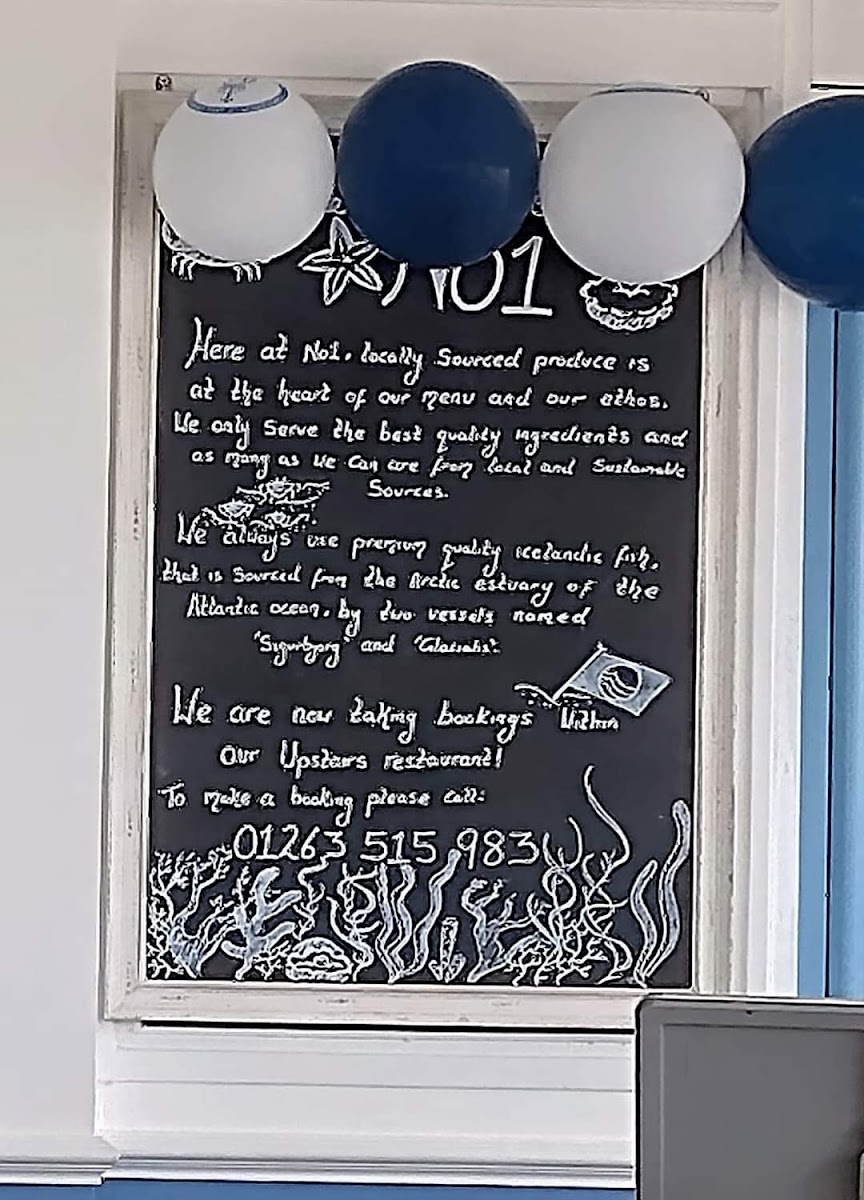 No1
Here at No1. locally Sourced produce is
at the heart of our menu and our ethos.
We only Serve the best quality ingredients and
as many as we can are from local and Sustainable
Sources.
We always use premium quality icelandic fish,
that is Sourced from the Arctic estuary of the
Atlantic ocean, by two vessels named
"Sigurbjorg" and
We are now taking bookings Within
our Upstairs restaurant!
To make a booking please call:
01263 515 983